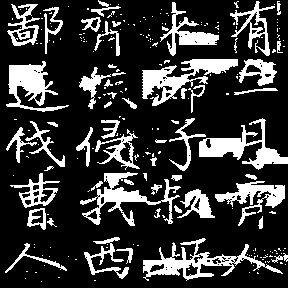 有二月齊人
來歸子叔姬
齊侯侵我西
鄙遂伐曹入